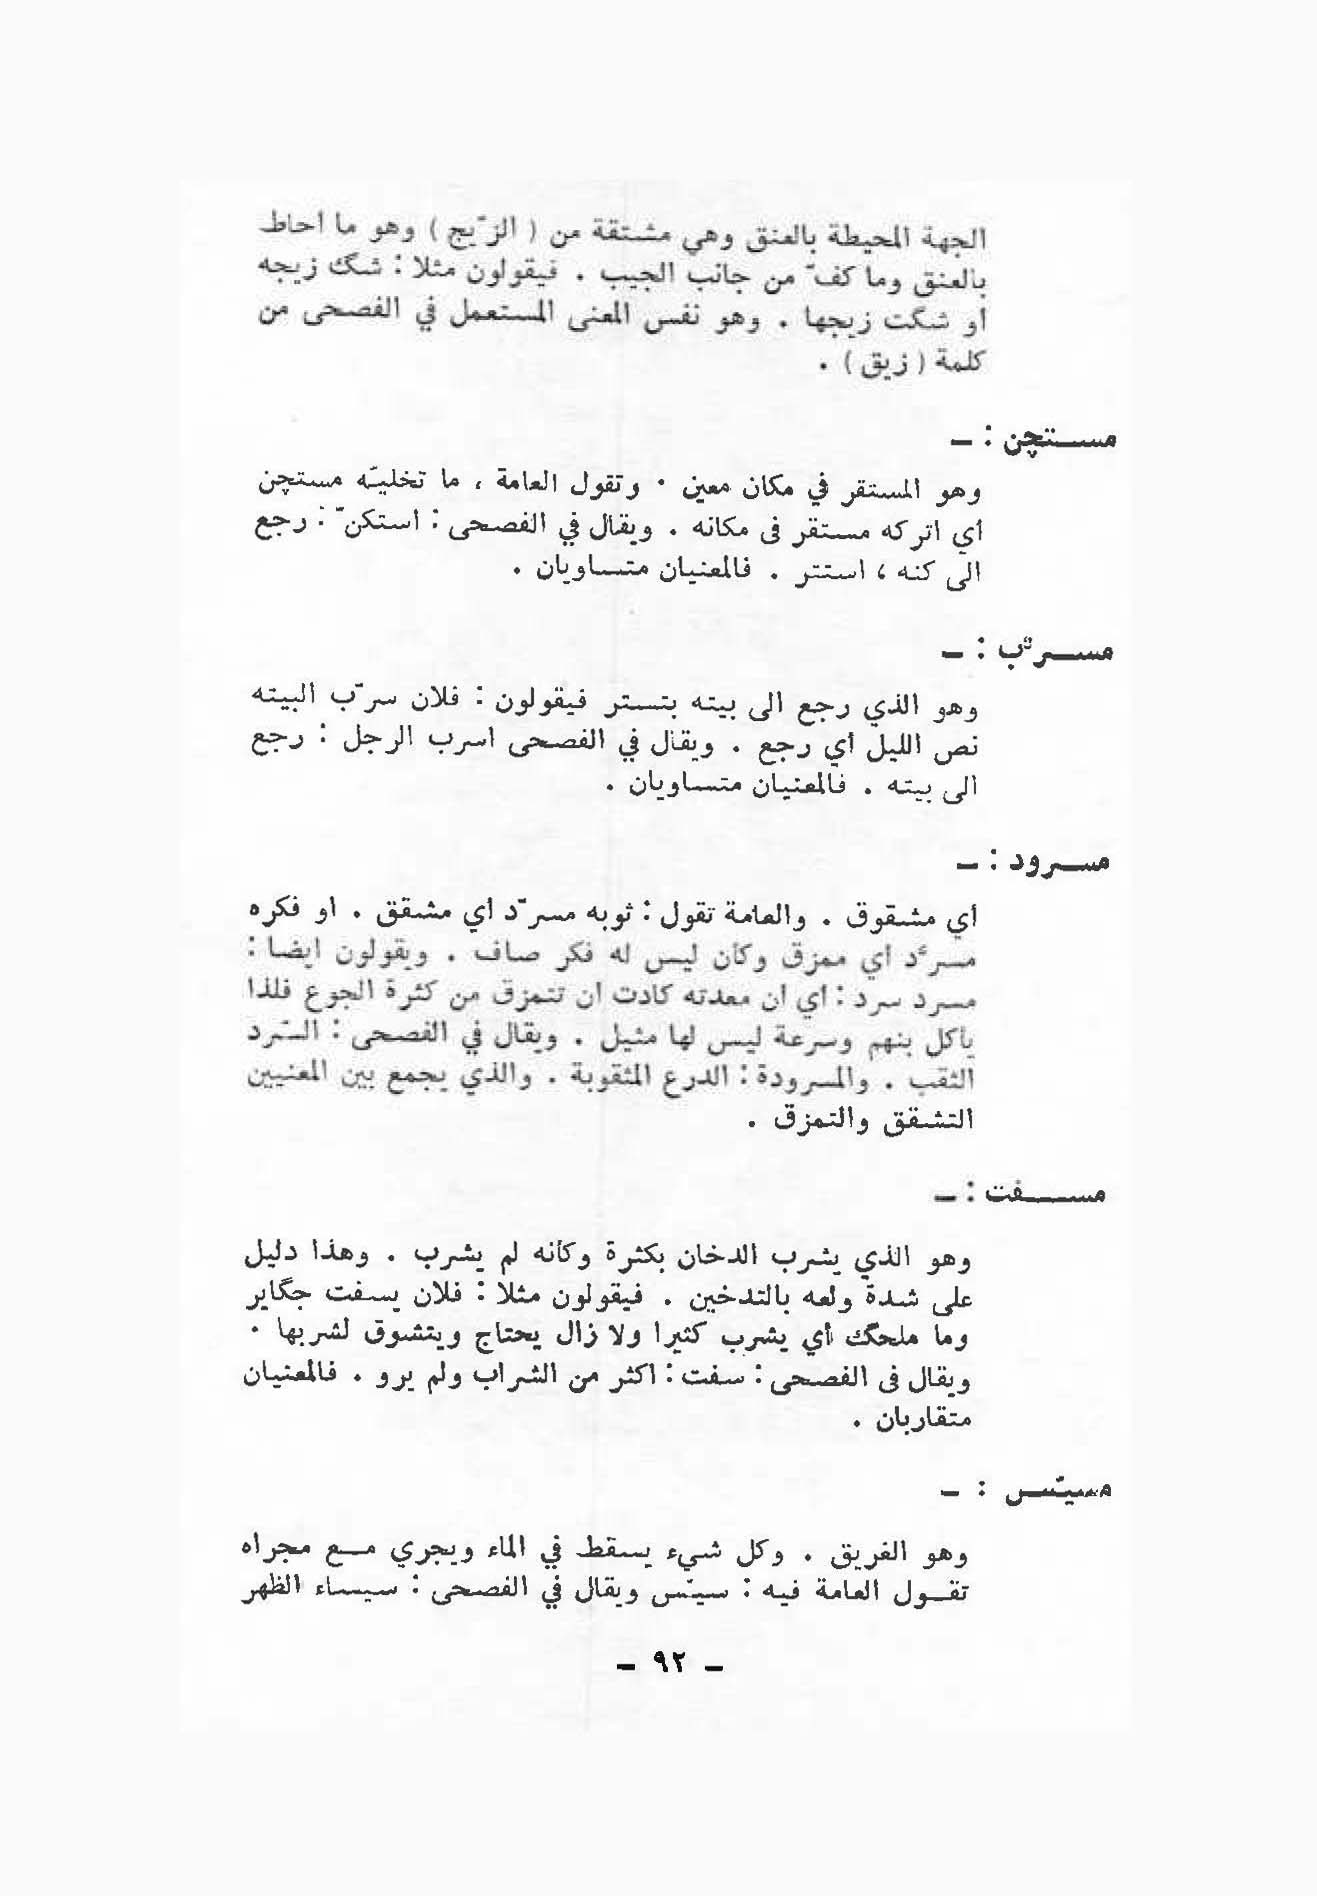 الجهة المحيطة بالعنق وهي مشتقة من ( الزّيج ) وهو ما أحاط
بالعنق وما كفّ من جانب الجيب . فيقولون مثلا : شگك زيجه
أو شگت زيجها . وهو نفس المعنى المستعمل في الفصحى من
كلمة ( زيق ) .
مستچن : ــ
وهو المستقر في مكان معين . وتقول العامة ، ما تخليّه مستچن
أي اتركه مستقر فى مكانه . ويقال في الفصحى : استكنّ : رجع
الى كنه ، استتر . فالمعنيان متساويان .
مسرّب : ــ
وهو الذي رجع الى بيته بتستر فيقولون : فلان سرّب البيته
نص الليل أي رجع . ويقال في الفصحى اسرب الرجل : رجع
الى بيته . فالمعنيان متساويان .
مسرود : ــ
أي مشقوق . والعامة تقول : ثوبه مسرّد أي مشقق . او فكره
مسرّد أي ممزق وكأن ليس له فكر صاف . ويقولون ايضا :
مسرد سرد : أي ان معدته كادت ان تتمزق من كثرة الجوع فلذا
يأكل بنهم وسرعة ليس لها مثيل . ويقال في الفصحى : السّرد
الثقب . والمسرودة : الدرع المثقوبة . والذي يجمع بين المعنيين
التشقق والتمزق .
مسفت : ــ
وهو الذي يشرب الدخان بكثرة وكأنه لم يشرب . وهذا دليل
على شدة ولعه بالتدخين . فيقولون مثلا : فلان يسفت جگاير
وما ملحگك أي يشرب كثيرا ولا زال يحتاج ويتشوق لشربها .
ويقال فى الفصحى : سفت : اكثر من الشراب ولم يرو . فالمعنيان
متقاربان .
مسيّس : ــ
وهو الغريق . وكل شيء يسقط في الماء ويجري مع مجراه
تقول العامة فيه : سيّس ويقال في الفصحى : سيساء الظهر
ــ ٩٢ ــ